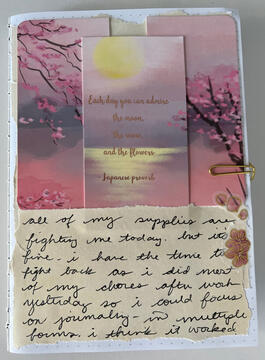 Each day you can admire
the moon,
the snow,
and the flowers
Japanese proverb
all of my supplies are
fighting me today. but its
fine. i have the time to
fight back as i did most
of my chores after work
yesterday so i could focus
on journaling - in multiple
forms. i think it worked